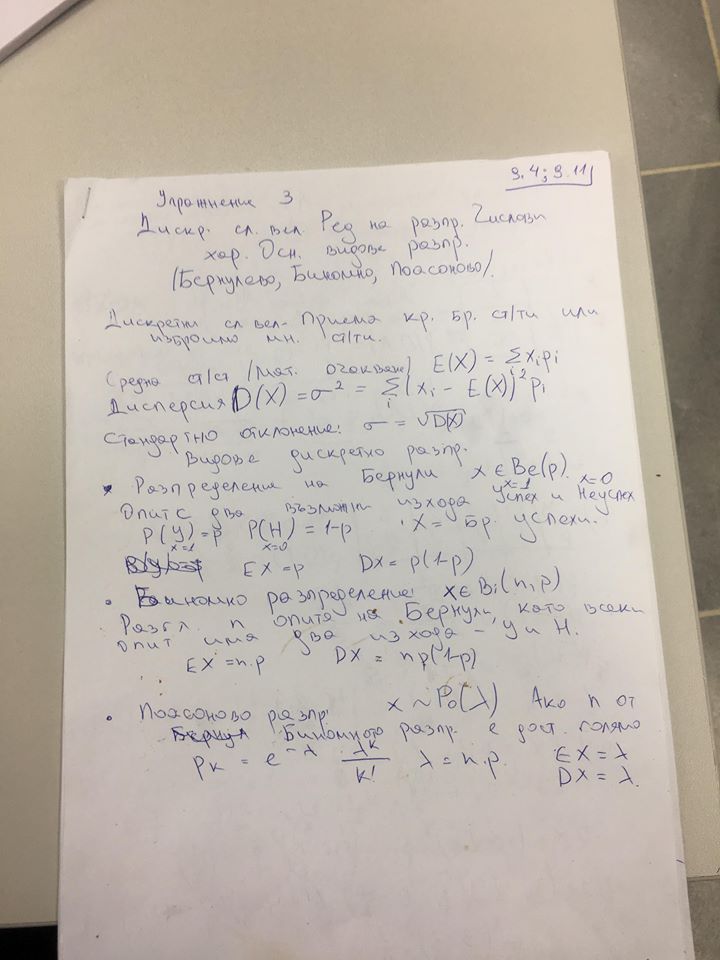 9.4; 9.11
Упражнение 3
Дискр. сл. вел. Ред на разпр. Числови
хар. Осн. видове разпр.
/Бернулево, Биномно, Поасоново/.
Дискретни сл вел- Приема кр. бр. ст/ти или
изброимо мн. ст/ти.
Средна ст/ст /Мат. очакване/ E(X) = Σ xᵢpᵢ
i
Дисперсия D(X) = σ² = Σ (xᵢ - E(X))² pᵢ
i
Стандартно отклонение: σ = √D(X)
Видове дискретно разпр.
Разпределение на Бернули x ∈ Be(p).
x=1 x=0
Опит с два възможни изхода Успех и Неуспех
P(У)=p P(H) = 1-p X = бр. успехи.
x=1 x=0
EX = p DX = p(1-p)
• Биномно разпределение: x ∈ Bi(n,p)
Разгл. n опита на Бернули, като всеки
опит има два изхода - У и Н.
EX = n.p DX = np(1-p)
• Поасоново разпр. x ~ Po(λ) Ако n от
Биномното разпр. е дост. голямо
Pk = e^-λ λ^k/k! λ = n.p. EX = λ
DX = λ.